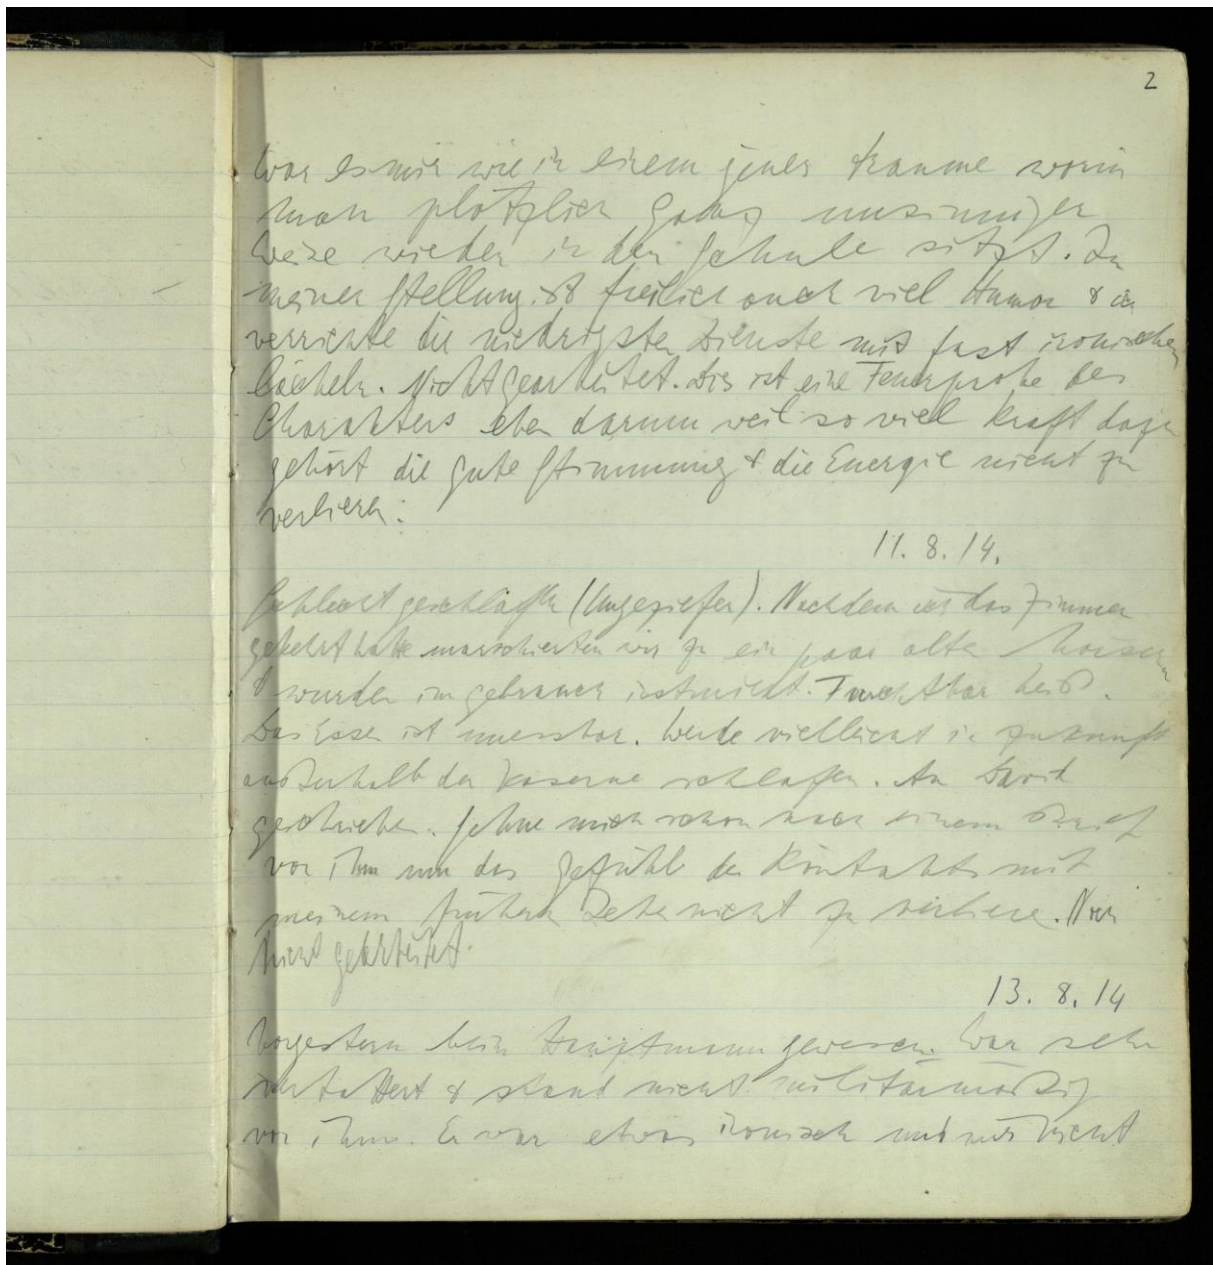 2
war es mir wie in einem jener Träume worin
man plötzlich ganz unsinniger
weise wieder in der Schule sitzt. In
meiner Stellung ist freilich auch viel Humor & ich
verrichte die niedrigsten Dienste mit fast ironischem
lächeln. Nicht gearbeitet. Dies ist eine Feuerprobe des
Charakters eben darum weil so viel Kraft dazu
gehört die gute Stimmung & die Energie nicht zu
verlieren.
11. 8. 14.
Schlecht geschlafen (Ungeziefer). Nachdem ich das Zimmer
gekehrt hatte marschierten wir zu ein paar alten
& wurden im gebrauch instruiert. Furchtbar heiß.
Das Essen ist unessbar. Werde vielleicht in Zukunft
außerhalb der Kaserne schlafen. An David
geschrieben. Sehne mich schon nach einem Brief
von ihm um das Gefühl des Kontakts mit
meinem frühern Leben nicht zu verlieren. Noch
nicht gearbeitet.
13. 8. 14
Vorgestern beim Hauptmann gewesen. War sehr
vertattert & stand nicht militärmäßig
vor ihm. Er war etwas ironisch und mir nicht